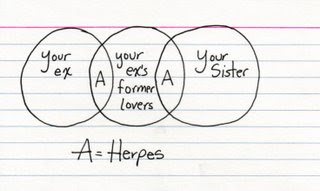 your
ex
A
your
ex's
former
lovers
A
Your
Sister
A = Herpes